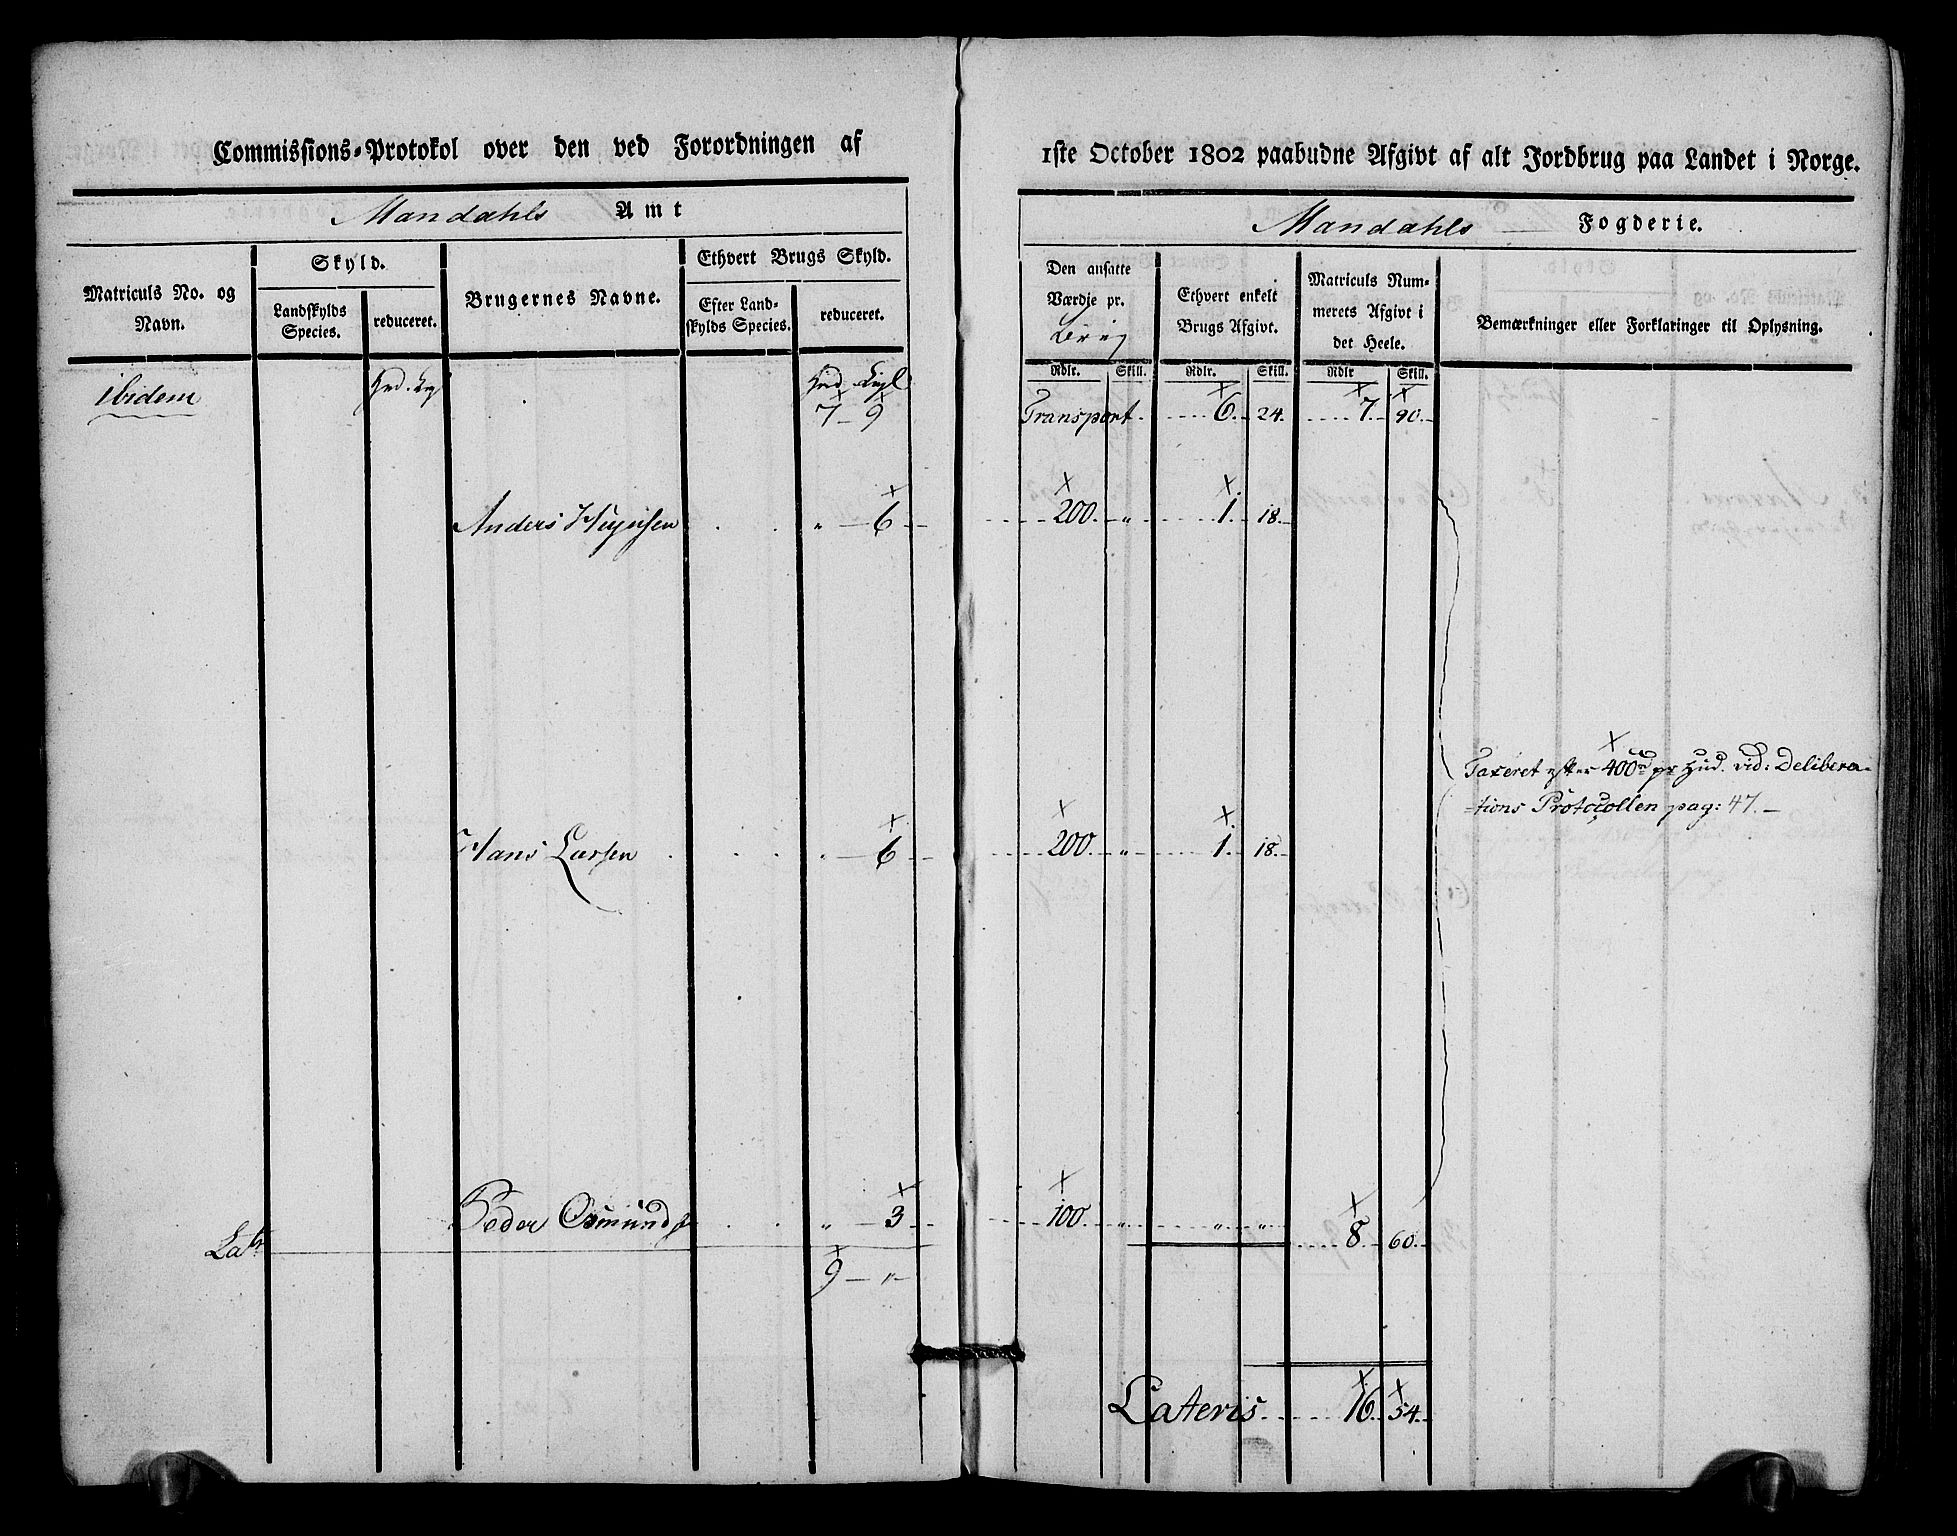 Commissions-Protokol over den ved Forordningen af
1ste October 1802 paabudne Afgivt af alt Jordbrug paa Landet i Norge.
Mandahls Amt
Mandahls Fogderie.
Matriculs No. og Navn.
Skyld.
Landskylds Species.
reduceret.
Brugernes Navne.
Ethvert Brugs Skyld.
Efter Landskylds Species.
reduceret.
Den ansatte Værdje pr.
Ethvert enkelt Brugs Afgivt.
Matriculs Nummerets Afgivt i det Heele.
Bemærkninger eller Forklaringer til Oplysning.
Rdlr. Skill. Rdlr. Skill. Rdlr Skill.
ibidem
7 - 9 Transport 6. 24. 7. 90.
Anders " 6 200. " 1. 18.
Taxeret efter 400 rd pr Hud. vid: Delibera-
-tions Protocollen pag: 47.
Hans Larsen " 6 200. " 1. 18.
Peder Osmunds " 3 100. " " " 8. 60.
Lat
9 - "
Lateris 16. 54.